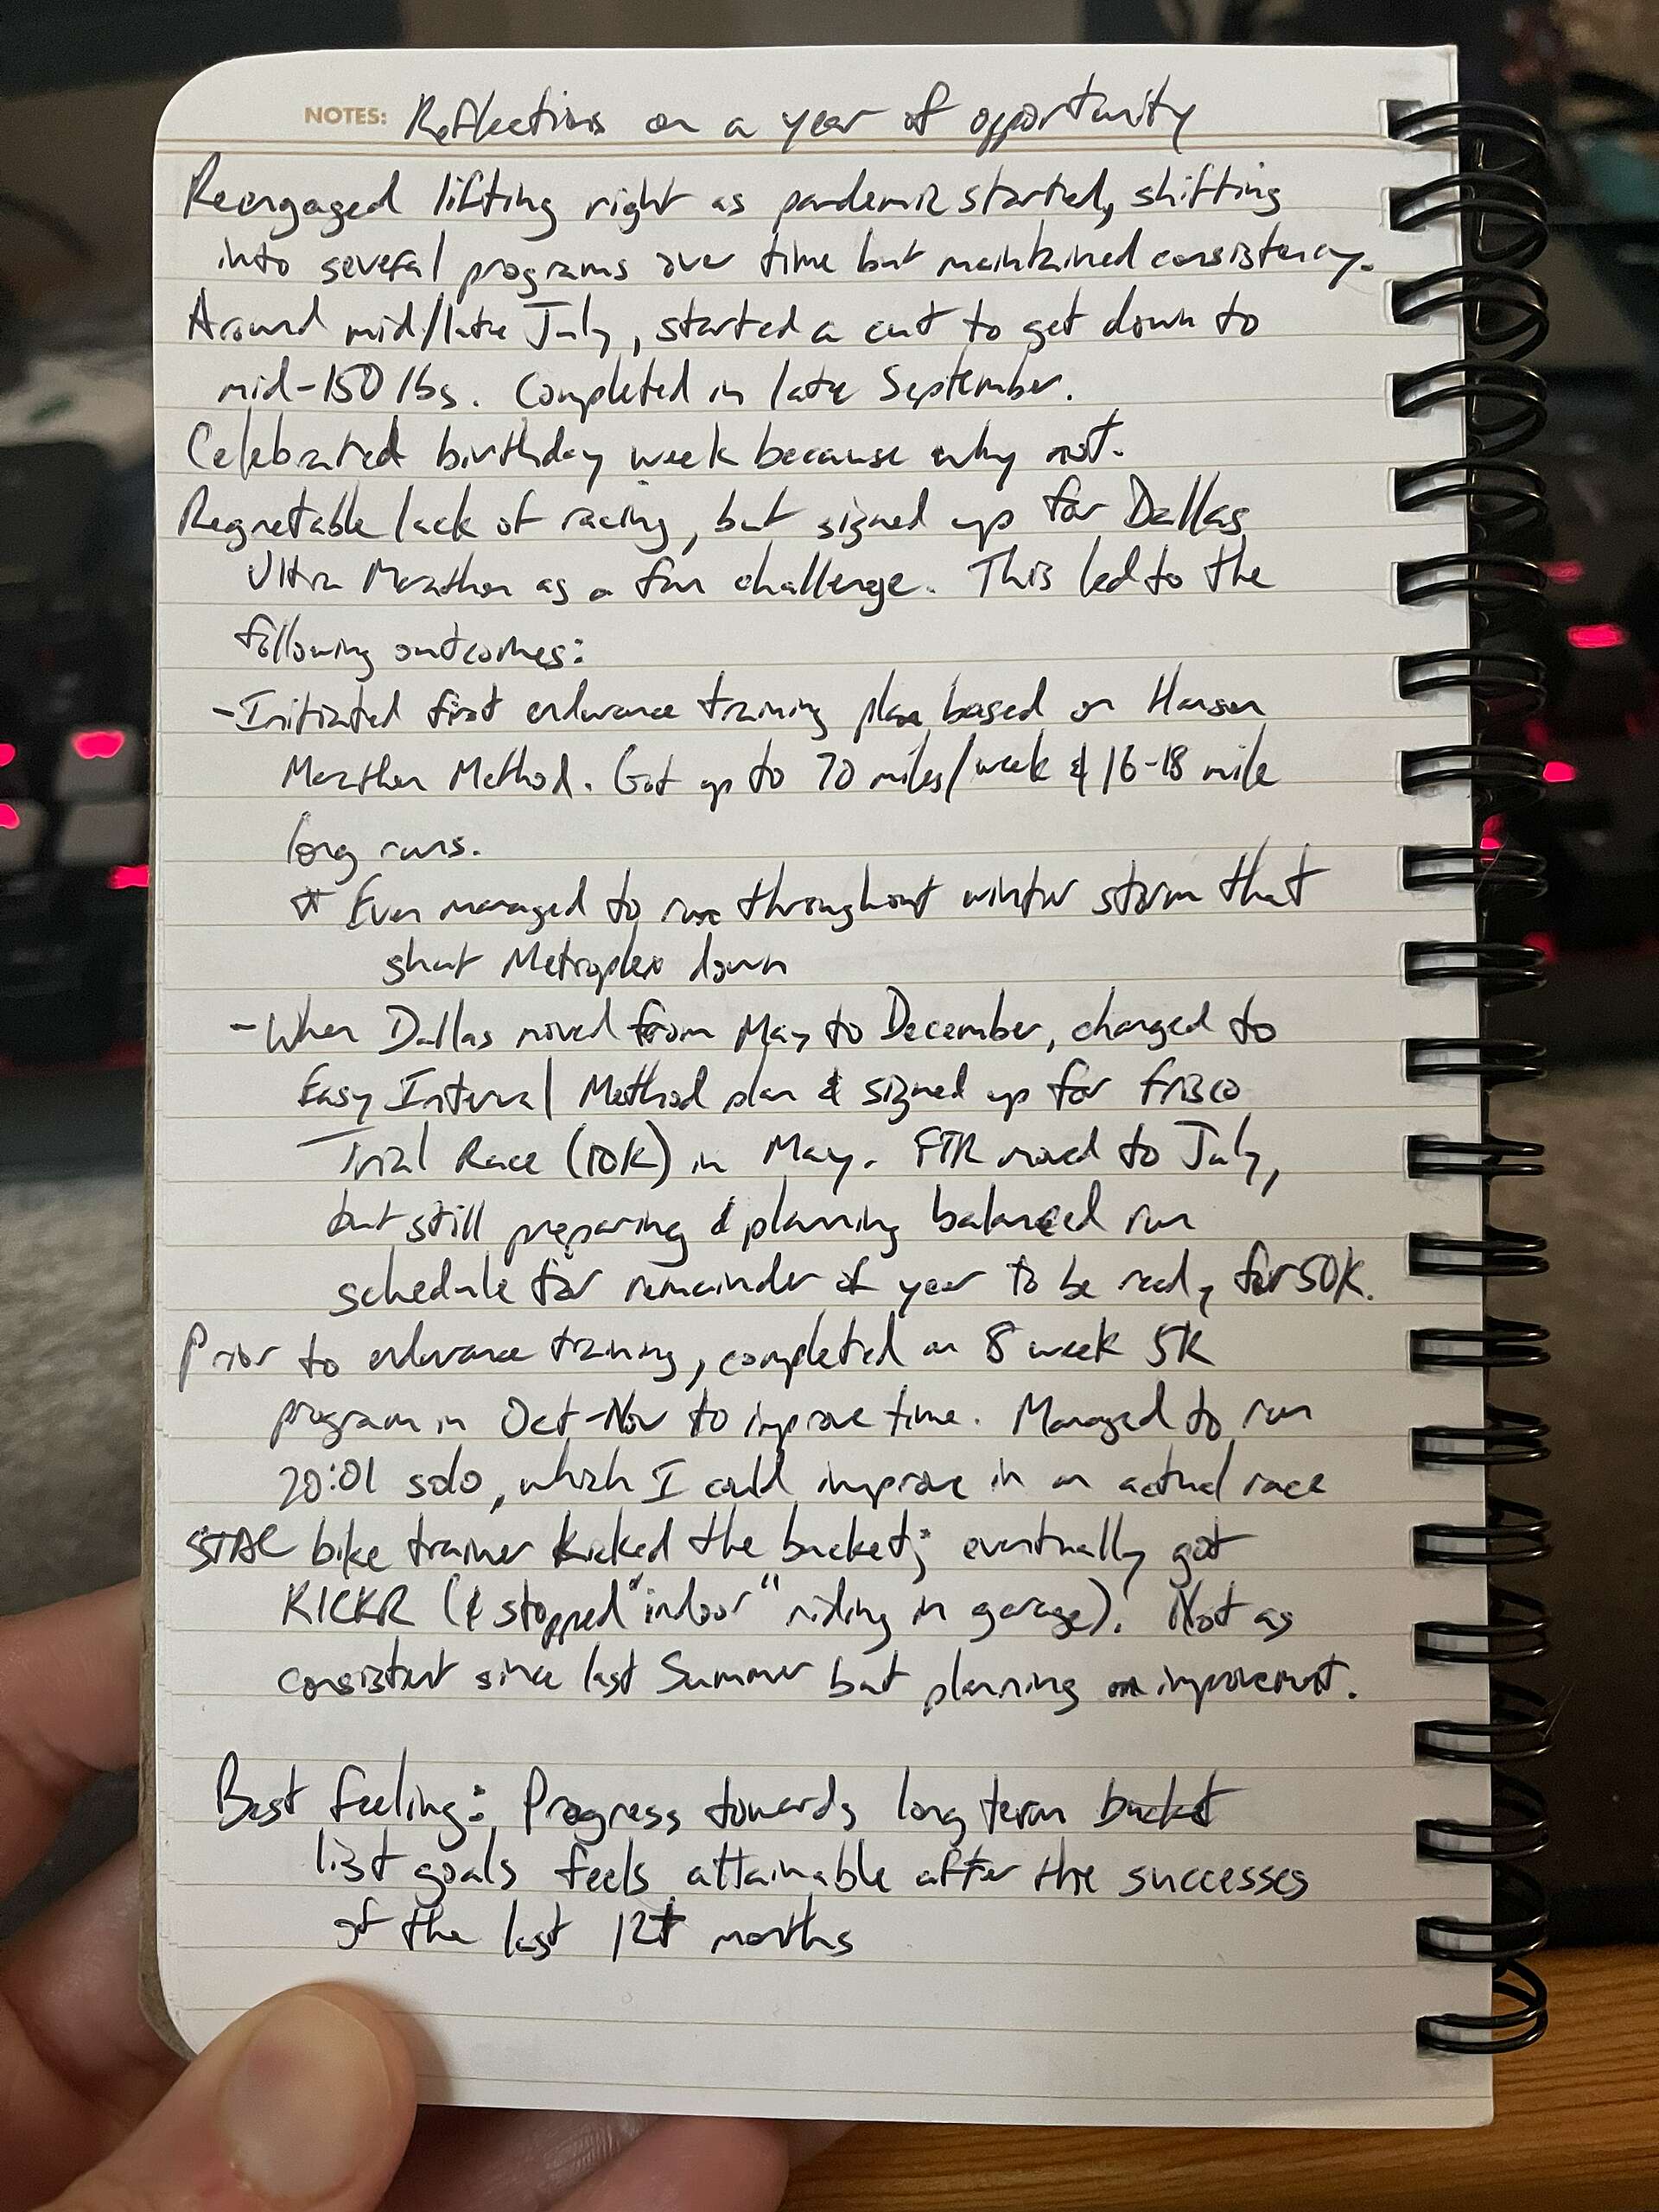 NOTES: Reflections on a year of opportunity
Reengaged lifting right as pandemic started, shifting
into several programs over time but maintained consistency.
Around mid/late July, started a cut to get down to
mid-150 lbs. Completed in late September.
Celebrated birthday week because why not.
Regretable lack of racing, but signed up for Dallas
Ultra Marathon as a fun challenge. This led to the
following outcomes:
-Initiated first endurance training plan based on Hanson
Marathon Method. Got up to 70 miles/week & 16-18 mile
long runs.
* Even managed to run throughout winter storm that
shut Metroplex down
-When Dallas moved from May to December, changed to
Easy Interval Method plan & signed up for Frisco
Trial Race (10K) in May. FTR moved to July,
but still preparing & planning balanced run
schedule for remainder of year to be ready for 50K.
Prior to endurance training, completed an 8 week 5K
program in Oct-Nov to improve time. Managed to run
20:01 solo, which I could improve in an actual race
STAC bike trainer kicked the bucket; eventually got
KICKR (& stopped "indoor" riding in garage). Not as
consistent since last Summer but planning on improvement.
Best feeling: Progress towards long term bucket
list goals feels attainable after the successes
of the last 12+ months